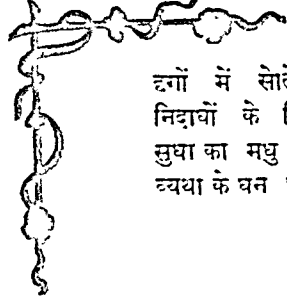 दृगों में सोते
निदाघों के
सुधा का मधु
व्यथा के घन